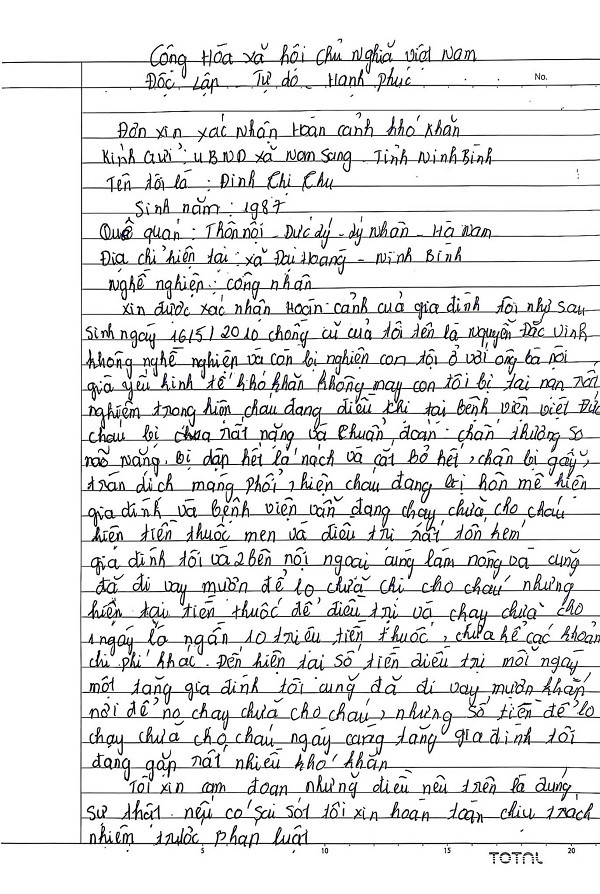 Cộng Hòa xã hội chủ nghĩa việt Nam
Độc Lập Tự do Hạnh phúc
No.
Đơn xin xác nhận Hoàn cảnh khó khăn
Kính Gửi : UBND xã Nam Sang - Tỉnh Ninh Bình
Tên tôi là : Đinh Thị Thu
Sinh năm : 1987
Quê quán : Thôn nội - Đức lý - lý Nhân - Hà Nam
Địa chỉ hiện tại : xã Đại Hoàng - Ninh Bình
Nghề nghiệp : công nhân
xin được xác nhận Hoàn cảnh của gia đình tôi như sau
Sinh ngày 16/5/2010 chồng cũ của tôi tên là Nguyễn Đắc Vinh
không nghề nghiệp và còn bị nghiện con tôi ở với ông bà nội
già yếu kinh tế khó khăn không may con tôi bị tai nạn rất
nghiêm trọng hiện cháu đang điều thị tại bệnh viện việt Đức
cháu bị chưa rất nặng và chuẩn đoán chấn thương sọ
não nặng, bị dập hết lá nách và cắt bỏ hết, chân bị gãy,
tràn dịch màng phổi, hiện cháu đang bị hôn mê hiện
gia đình và bệnh viện vẫn đang chạy chữa cho cháu
hiện tiền thuốc men và điều trị rất tốn kém
gia đình tôi và 2 bên nội ngoại cũng làm nông và cũng
đã đi vay mượn để lo chữa chị cho cháu nhưng
hiện tại tiền thuốc để điều trị và chạy chữa cho
1 ngày là ngần 10 triệu tiền thuốc, chưa kể các khoản
chi phí khác. Đến hiện tại số tiền điều trị mỗi ngày
một tăng gia đình tôi cũng đã đi vay mượn khắp
nơi để no chạy chữa cho cháu, nhưng số tiền để lo
chạy chữa cho cháu ngày càng tăng gia đình tôi
đang gặp rất nhiều khó khăn
Tôi xin cam đoan những điều nêu trên là đúng
sự thật nếu có sai sót tôi xin hoàn toàn chịu trách
nhiệm trước pháp luật
5 10 15 20
TOTAL